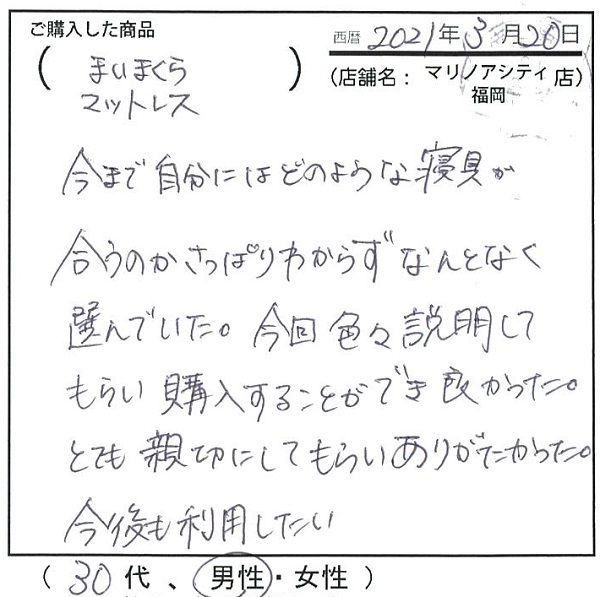 ご購入した商品
西暦 2021年 3月 20日
(まいまくら
マットレス)
(店舗名: マリノアシティ福岡 店)
今まで自分にはどのような寝具が
合うのかさっぱりわからずなんとなく
選んでいた。今回色々説明して
もらい購入することができ良かった。
とても親切にしてもらいありがたかった。
今後も利用したい
(30代、男性・女性)